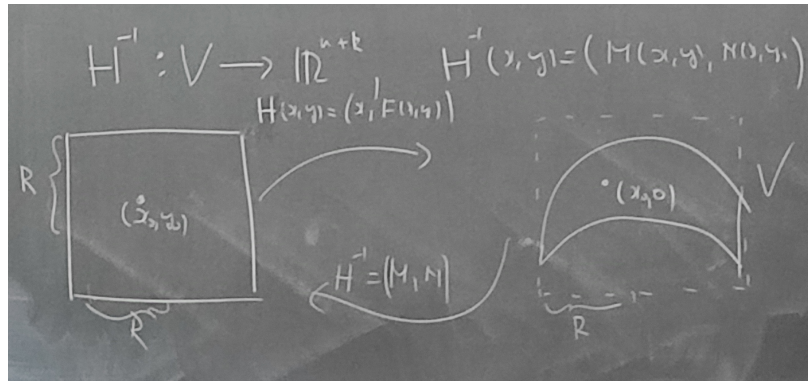 H⁻¹ : V → ℝⁿ⁺ᵏ
H⁻¹(x,y) = (M(x,y), N(x,y))
H(x,y) = (x, F(x,y))
R
(x₀,y₀)
(x₀,0)
V
H⁻¹ = (M, N)
R
R